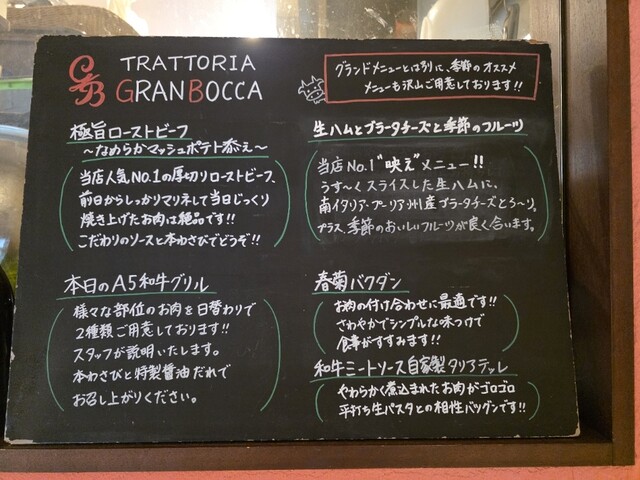 TRATTORIA
GRANBOCCA
グランドメニューとは別に、季節のオススメ
メニューも沢山ご用意しております!!
極旨ローストビーフ
～なめらかマッシュポテト添え～
当店人気No.1の厚切りローストビーフ、
前日からしっかりマリネして当日じっくり
焼き上げたお肉は絶品です!!
こだわりのソースと本わさびでどうぞ!!
本日のA5和牛グリル
様々な部位のお肉を日替わりで
2種類ご用意しております!!
スタッフが説明いたします。
本わさびと特製醤油だれで
お召し上がりください。
生ハムとブラータチーズと季節のフルーツ
当店No.1"映え"メニュー!!
うす～くスライスした生ハムに、
南イタリア・プーリア州産ブラータチーズとろ～り。
プラス、季節のおいしいフルーツが良く合います。
春菊バクダン
お肉の付け合わせに最適です!!
さわやかでシンプルな味つけで
食事がすすみます!!
和牛ミートソース自家製タリアテッレ
やわらかく煮込まれたお肉がゴロゴロ
平打ち生パスタとの相性バツグンです!!